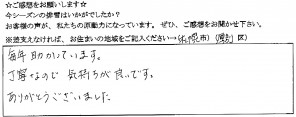 ☆ご感想をお願いします☆
今シーズンの排雪はいかがでしたか?
お客様の声が、私たちの原動力になっています。ぜひ、ご感想をお聞かせ下さい。
※差支えなければ、お住まいの地域をご記入ください→(札幌市)( 区)
毎年助かっています。
丁寧なので気持ちが良いです。
ありがとうございました